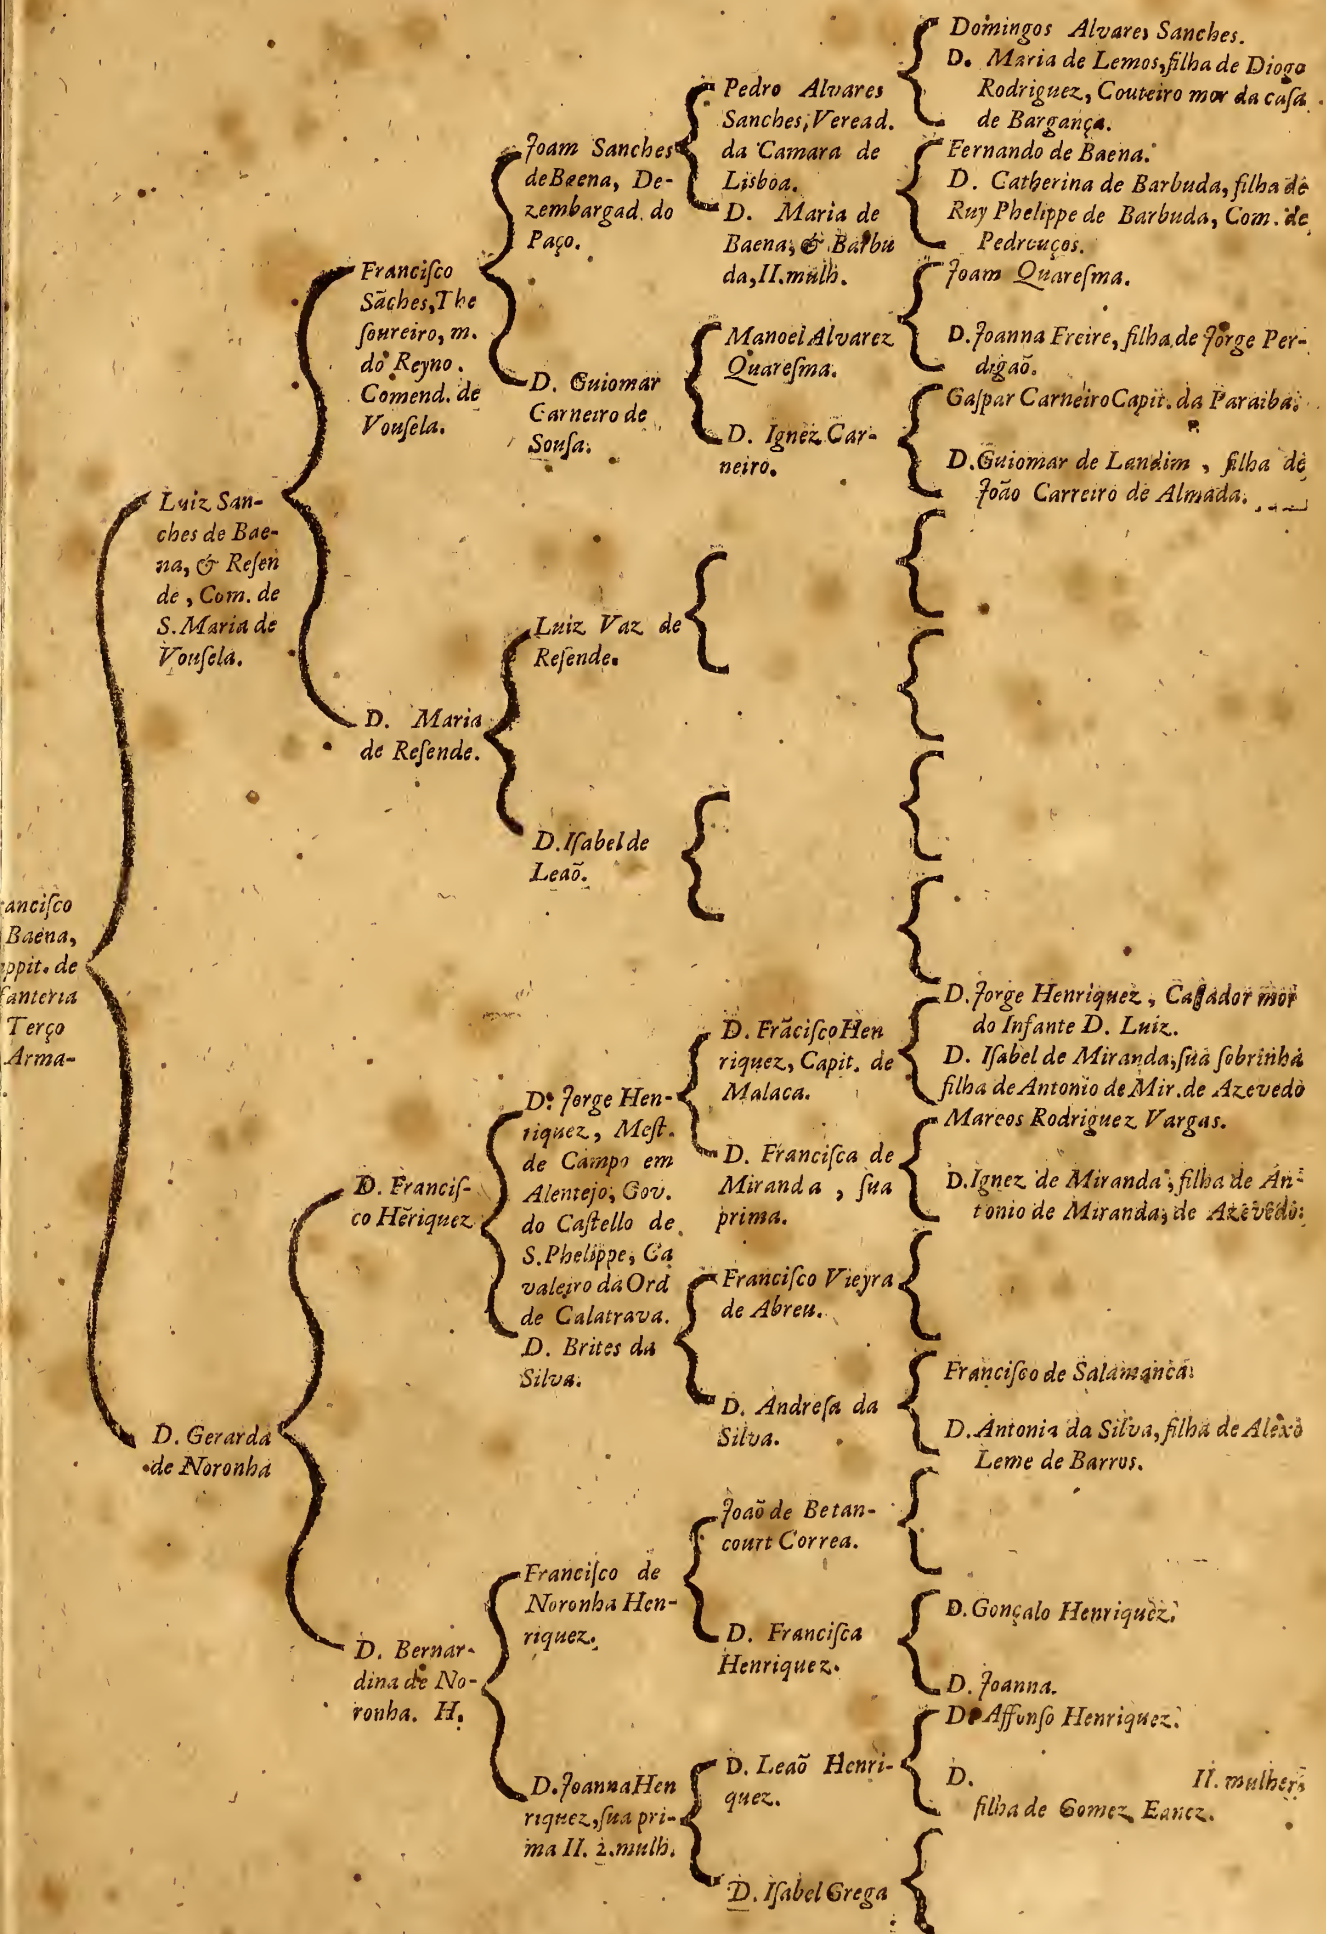 anciſco
Baena,
ppit. de
fanteria
Terço
Arma-
Luiz San-
ches de Bae-
na, & Reſen
de, Com. de
S. Maria de
Vouſela.
D. Gerarda
de Noronha
Franciſco
Sãches, The
ſoureiro, m.
do Reyno.
Comend. de
Vouſela.
D. Maria
de Reſende.
D. Franciſ-
co Hẽriquez
D. Bernar-
dina de No-
ronha. H.
Joam Sanches
de Baena, De-
zembargad. do
Paço.
D. Guiomar
Carneiro de
Souſa.
Luiz Vaz de
Reſende.
D. Iſabel de
Leaõ.
D. Jorge Hen-
riquez, Meſt.
de Campo em
Alentejo, Gov.
do Caſtello de
S. Phelippe, Ca
valeiro da Ord
de Calatrava.
D. Brites da
Silva.
Franciſco de
Noronha Hen-
riquez.
D. Joanna Hen
riquez, ſua pri-
ma II. 2. mulh.
Pedro Alvares
Sanches, Veread.
da Camara de
Lisboa.
D. Maria de
Baena, & Barbu
da, II. mulh.
Manoel Alvarez
Quareſma.
D. Ignez Car-
neiro.
D. Frãciſco Hen
riquez, Capit. de
Malaca.
D. Franciſca de
Miranda, ſua
prima.
Franciſco Vieyra
de Abreu.
D. Andreſa da
Silva.
Joaõ de Betan-
court Correa.
D. Franciſca
Henriquez.
D. Leaõ Henri-
quez.
D. Iſabel Grega
Domingos Alvares Sanches.
D. Maria de Lemos, filha de Diogo
Rodriguez, Couteiro mor da caſa
de Bargança.
Fernando de Baena.
D. Catherina de Barbuda, filha de
Ruy Phelippe de Barbuda, Com. de
Pedrouços.
Joam Quareſma.
D. Joanna Freire, filha de Jorge Per-
digaõ.
Gaſpar Carneiro Capit. da Paraiba.
D. Guiomar de Landim, filha de
João Carreiro de Almada.
D. Jorge Henriquez, Caçador mor
do Infante D. Luiz.
D. Iſabel de Miranda, ſua ſobrinha
filha de Antonio de Mir. de Azevedo
Marcos Rodriguez Vargas.
D. Ignez de Miranda, filha de An-
tonio de Miranda, de Azevedo.
Franciſco de Salamanca.
D. Antonia da Silva, filha de Alexo
Leme de Barros.
D. Gonçalo Henriquez.
D. Joanna.
D. Affonſo Henriquez.
D. II. mulher,
filha de Gomez Eanez.